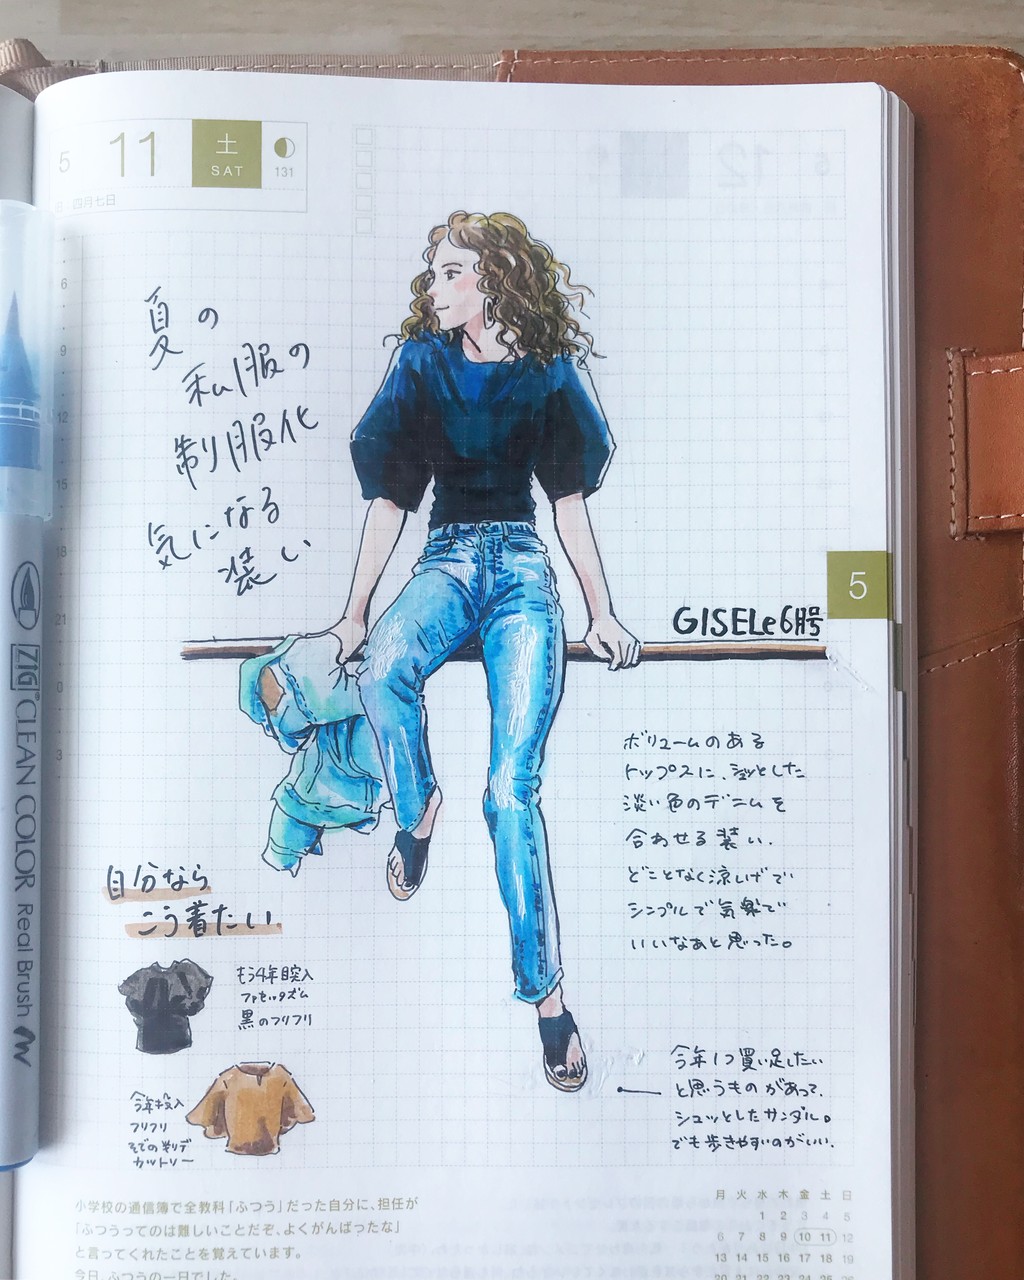 5 11 土 SAT 131
四月七日
夏の
私服の
制服化
気になる
装い
6
9
12
15
18
21
0
3
5
GISELe6月号
ZIG CLEAN COLOR Real Brush
ボリュームのある
トップスに、シュッとした
淡い色のデニムを
合わせる装い.
どことなく涼しげで
シンプルで気楽で
いいなあと思った。
自分なら
こう着たい
もう4年目突入
黒のフリフリ
今年投入
フリフリ
そでの
カットソー
今年1つ買い足したい
と思うものがあって、
シュッとしたサンダル。
でも歩きやすいのがいい.
小学校の通信簿で全教科「ふつう」だった自分に、担任が
「ふつうってのは難しいことだぞ、よくがんばったな」
と言ってくれたことを覚えています。
今日、ふつうの一日でした。
月 火 水 木 金 土 日
1 2 3 4 5
6 7 8 9 10 11 12
13 14 15 16 17 18 19
20 21 22 23 24 25 26